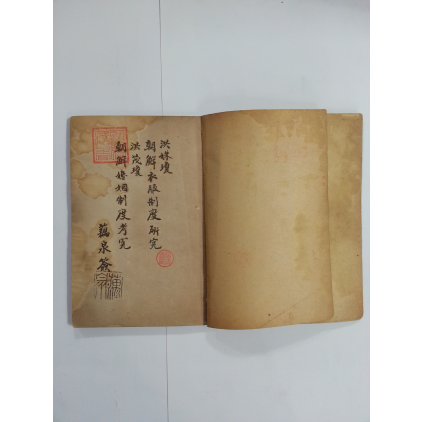 洪媒瓊
朝鮮衣服制度研究
洪茂瓊
朝鮮婚姻制度考究
藕泉簽